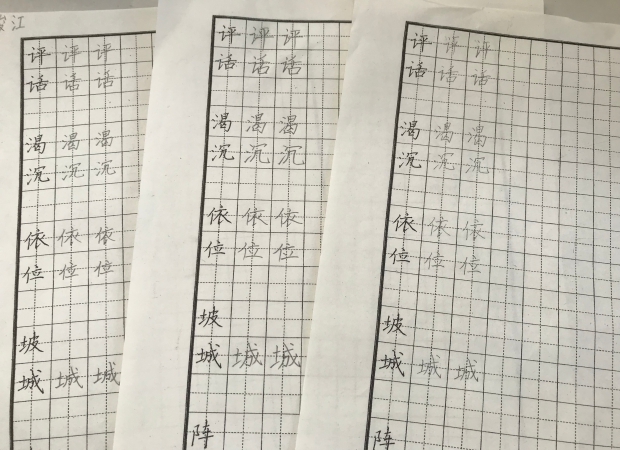 江
评 评 评
话 话 话
渴 渴 渴
沉 沉 沉
依 依 依
位 位 位
坡
城 城 城
评 评 评
话 话 话
渴 渴 渴
沉 沉 沉
依 依 依
位 位 位
坡
城 城 城
阵
评 评 评
话 话 话
渴 渴 渴
沉 沉 沉
依 依 依
位 位 位
坡
城 城 城
阵